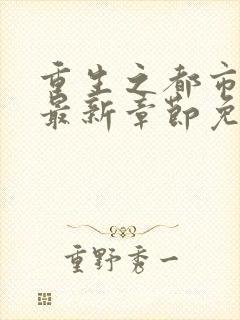 重生之都市
最新章节免
重野秀一